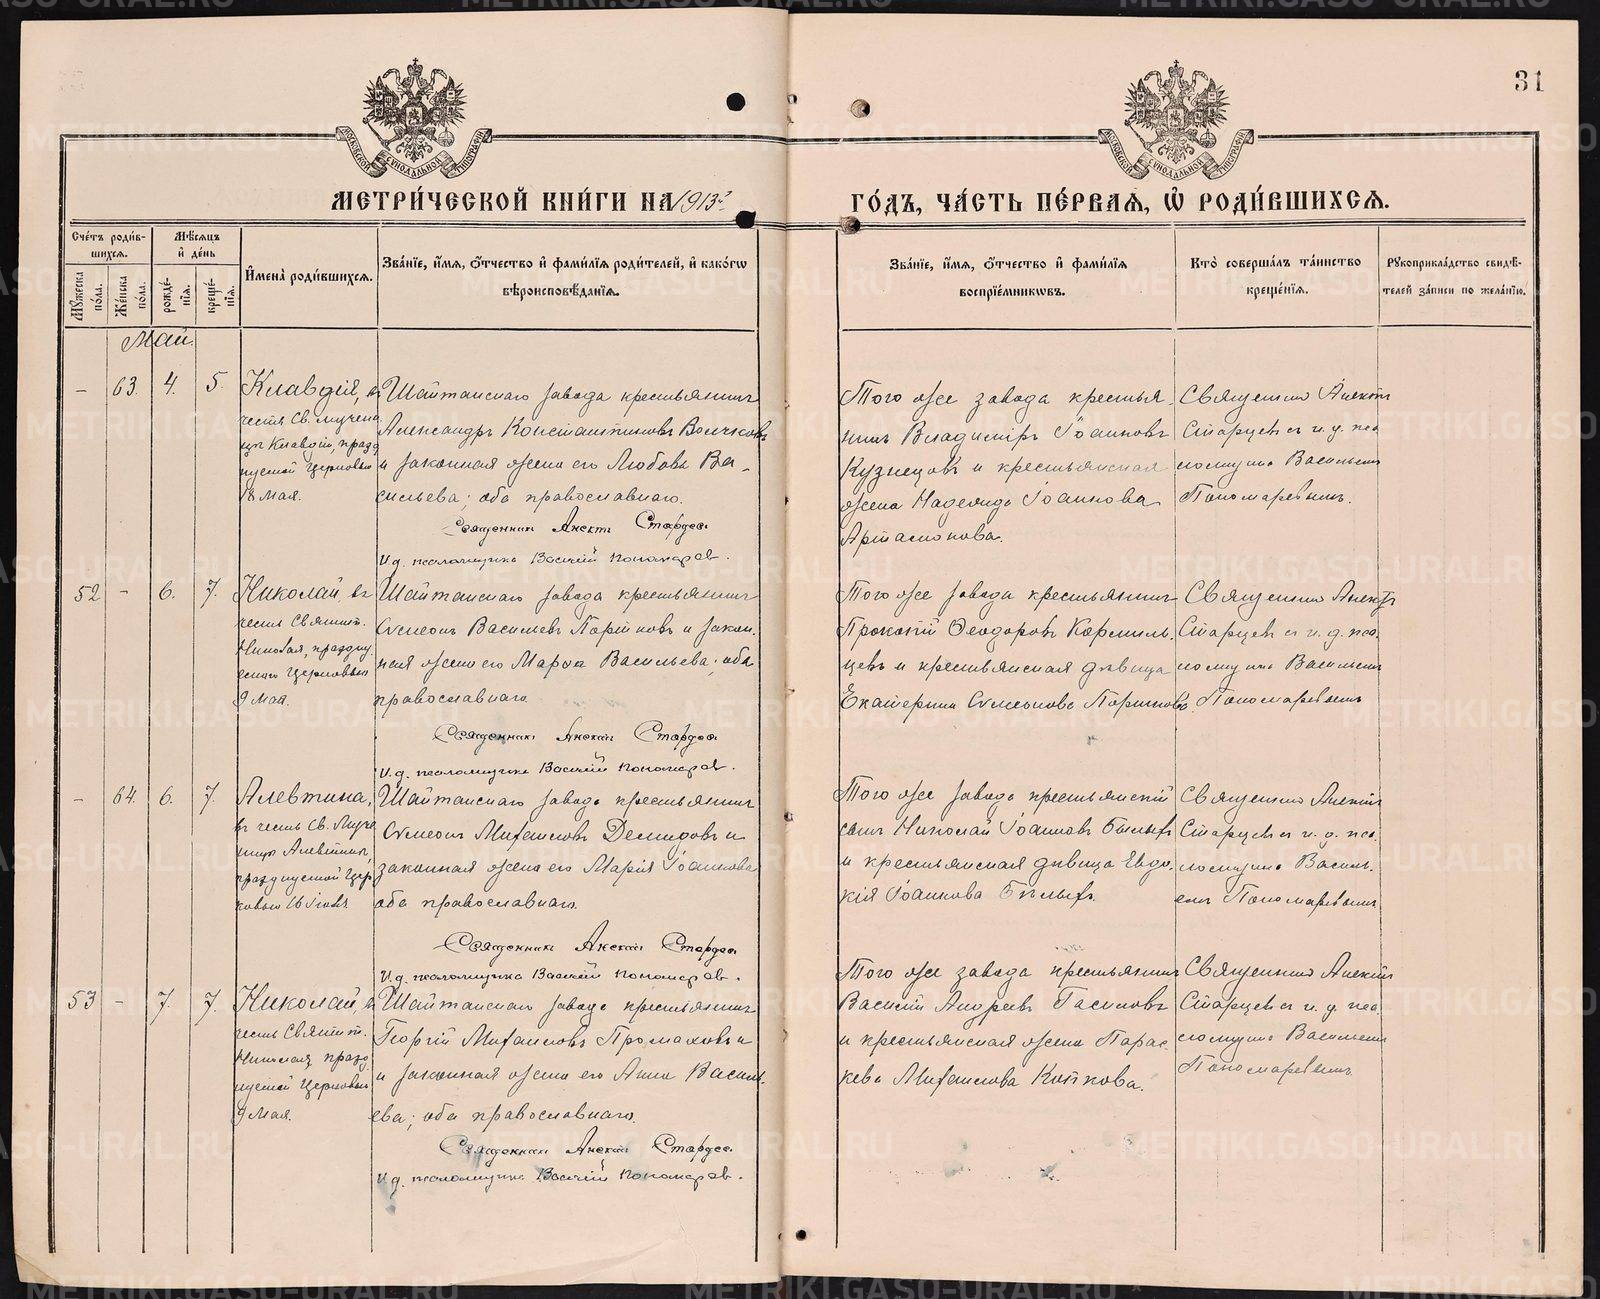 31
МЕТРИ́ЧЕСКОЙ КНИ́ГИ НА 1913 г
ГО́ДЪ, ЧА́СТЬ ПЕ́РВАѦ, Ѡ҆ РОДИ́ВШИХСѦ.
Сче́тъ роди́в-
шихсѧ.
Мѣ́сѧцъ
и҆ де́нь
Мꙋ́жеска
по́ла.
Же́нска
по́ла.
рожде́-
нїѧ.
креще́-
нїѧ.
И҆мена̀ роди́вшихсѧ.
Зва́нїе, и҆́мѧ, ѻ҆́тчество и҆ фами́лїѧ роди́телей, и҆ како́гѡ
вѣроисповѣ́данїѧ.
Зва́нїе, и҆́мѧ, ѻ҆́тчество и҆ фами́лїѧ
воспрїе́мникѡвъ.
Кто̀ соверша́лъ та́инство
креще́нїѧ.
Рꙋкоприкла́дство свидѣ́-
телей за́писи по жела́нїю.
Май.
- 63. 4. 5.
Клавдія, въ
честь Св. мучени
цы Клавдіи, празд
нуемой Церковью
18 мая.
Шайтанскаго завода крестьянинъ
Александръ Константиновъ Волчковъ
и законная жена его Любовь Ва-
сильева; оба православнаго.
Священник Алексій Старцев
И.д. псаломщика Василій Пономарев.
Того же завода крестья-
нинъ Владиміръ Іоанновъ
Кузнецовъ и крестьянская
жена Надежда Іоаннова
Артамонова.
Священникъ Алексій
Старцевъ съ и. д. пса
ломщика Васильемъ
Пономаревымъ.
52 - 6. 7.
Николай, въ
честь Святит.
Николая, праздну
емаго Церковью
9 мая.
Шайтанскаго завода крестьянинъ
Симеонъ Васильевъ Паршковъ и закон.
ная жена его Марѳа Васильева; оба
православнаго.
Священник Алексій Старцев
И.д. псаломщика Василій Пономарев.
Того же завода крестьянинъ
Прокопій Ѳеодоровъ Кормиль-
цевъ и крестьянская дѣвица
Екатерина Симеонова
Священникъ Алексій
Старцевъ съ и. д. пса
ломщика Васильемъ
Пономаревымъ
- 64. 6. 7.
Алевтина,
въ честь Св. Муче
ницы Алевтины,
празднуемой Цер
ковью 16 Іюля
Шайтанскаго завода крестьянинъ
Симеонъ Михаиловъ Демидовъ и
законная жена его Марія Іоаннова
оба православнаго.
Священник Алексій Старцев
И.д. псаломщика Василій Пономарев.
Того же завода крестьянскій
сынъ Николай Іоанновъ Бѣлыхъ
и крестьянская дѣвица Евдо-
кія Іоаннова Бѣлыхъ.
Священникъ Алексій
Старцевъ съ и. д. пса
ломщика Василь-
емъ Пономаревымъ
53 - 7. 7.
Николай, въ
честь Святит.
Николая, празд
нуемаго Церковью
9 мая.
Шайтанскаго завода крестьянинъ
Георгій Михаиловъ Промаховъ и
и законная жена его Анна Василь-
ева; оба православнаго.
Священник Алексій Старцев
И.д. псаломщика Василій Пономарев.
Того же завода крестьянинъ
Василій Андреевъ Гасиловъ
и крестьянская жена Парас-
кева Михаилова Копкова.
Священникъ Алексій
Старцевъ съ и. д. пса
ломщика Васильемъ
Пономаревымъ.
METRIKI.GASO-URAL.RU